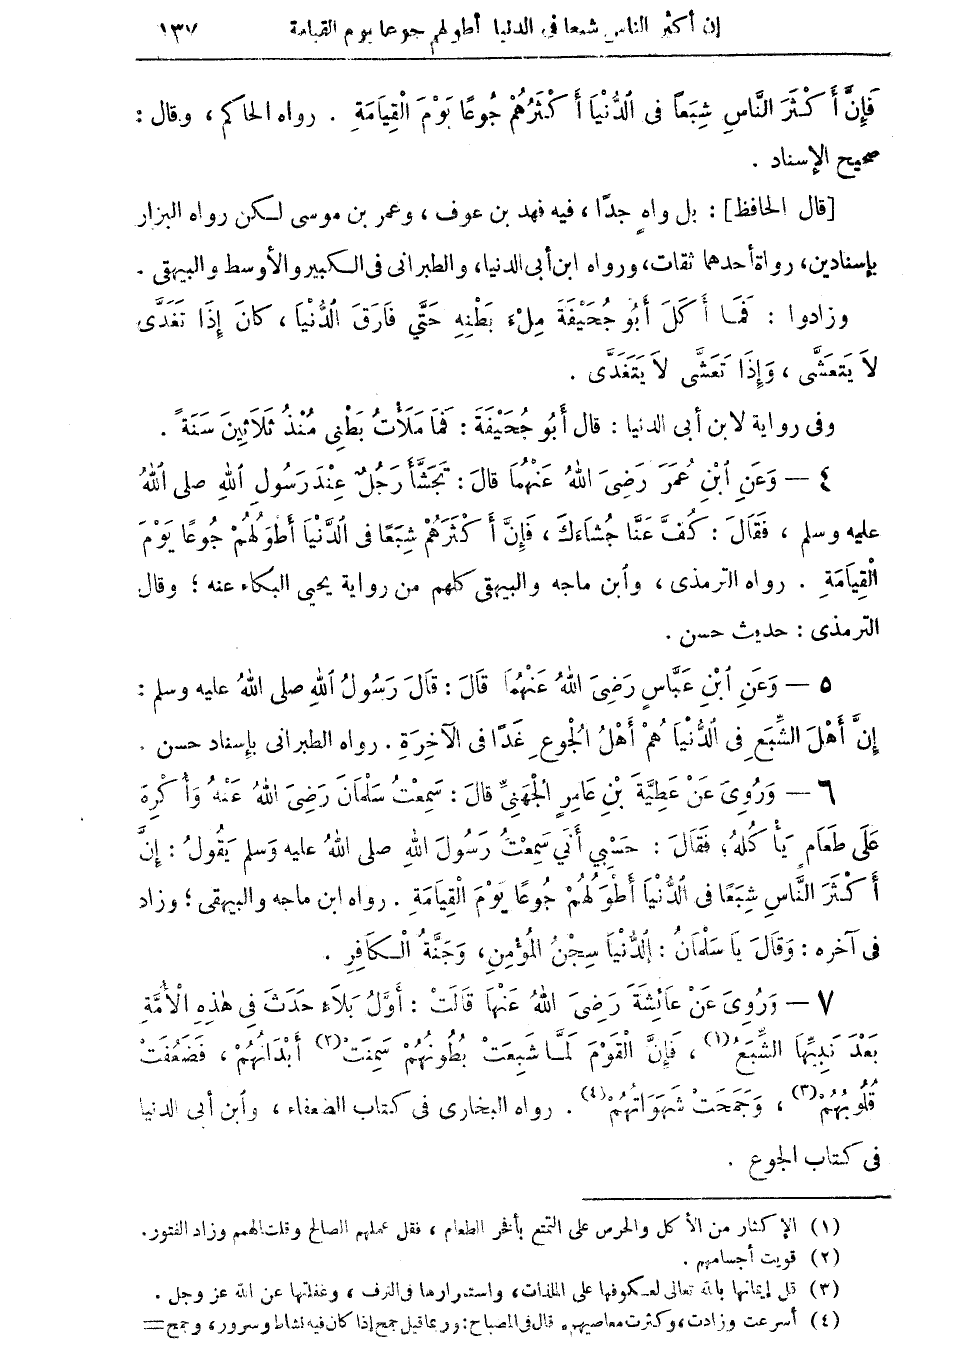 إن أكثر الناس شبعا في الدنيا أطولهم جوعا يوم القيامة ١٣٧
فَإِنَّ أَكْثَرَ النَّاسِ شِبَعاً فى الدُّنْيَا أَكْثَرُهُمْ جُوعًا يَوْمَ الْقِيَامَةِ . رواه الحاكم ، وقال :
صحيح الإسناد .
[قال الحافظ] : بل واهٍ جدًّا ، فيه فهد بن عوف ، وعمر بن موسى لكن رواه البزار
بإسنادين، رواة أحدهما ثقات، ورواه ابن أبى الدنيا، والطبرانى فى الكبير والأوسط والبيهقى .
وزادوا : فَمَا أَكَلَ أَبُو جُحَيْفَةَ مِلْءَ بَطْنِهِ حَتَّى فَارَقَ الدُّنْيَا ، كانَ إِذَا تَغَدَّى
لاَ يَتَعَشَّى ، وَإِذَا تَعَشَّى لاَ يَتَغَدَّى .
وفى رواية لابن أبى الدنيا : قال أَبُو جُحَيْفَةَ : فَمَا مَلَأْتُ بَطْنِى مُنْذُ ثَلَاثِينَ سَنَةً .
٤ — وَعَنِ ابْنِ عُمَرَ رَضِىَ اللهُ عَنْهُمَا قالَ : تَجَشَّأَ رَجُلٌ عِنْدَ رَسُولِ اللهِ صلى اللهُ
عليه وسلم ، فَقَالَ : كُفَّ عَنَّا جُشَاءَكَ ، فَإِنَّ أَكْثَرَهُمْ شِبَعًا فى الدُّنْيَا أَطْوَلُهُمْ جُوعًا يَوْمَ
الْقِيَامَةِ . رواه الترمذى ، وابن ماجه والبيهقى كلهم من رواية يحيى البكاء عنه ؛ وقال
الترمذى : حديث حسن .
٥ — وَعَنِ ابْنِ عَبَّاسٍ رَضِىَ اللهُ عَنْهُمَا قَالَ : قَالَ رَسُولُ اللهِ صلى اللهُ عليه وسلم :
إِنَّ أَهْلَ الشِّبَعِ فِى الدُّنْيَا هُمْ أَهْلُ الْجُوعِ غَدًا فى الآخِرَةِ . رواه الطبرانى بإسناد حسن .
٦ — وَرُوِىَ عَنْ عَطِيَّةَ بْنِ عَامِرٍ الْجُهَنِىِّ قالَ : سَمِعْتُ سَلْمَانَ رَضِىَ اللهُ عَنْهُ وَأُكْرِهَ
عَلَى طَعَامٍ يَأْكُلُهُ؛ فَقَالَ : حَسْبِى أَنِّى سَمِعْتُ رَسُولَ اللهِ صلى اللهُ عليه وَسلم يَقُولُ : إِنَّ
أَكْثَرَ النَّاسِ شِبَعًا فى الدُّنْيَا أَطْوَلُهُمْ جُوعًا يَوْمَ الْقِيَامَةِ . رواه ابن ماجه والبيهقى ؛ وزاد
فى آخره : وَقَالَ يَا سَلْمَانُ : الدُّنْيَا سِجْنُ المُؤْمِنِ، وَجَنَّةُ الْكَافِرِ .
٧ — وَرُوِىَ عَنْ عَائِشَةَ رَضِىَ اللهُ عَنْهَا قَالَتْ : أَوَّلُ بَلاَءٍ حَدَثَ فِى هٰذِهِ الْأُمَّةِ
بَعْدَ نَبِيِّهَا الشِّبَعُ (١) ، فَإِنَّ الْقَوْمَ لَمَّا شَبِعَتْ بُطُونُهُمْ سَمِنَتْ (٢) أَبْدَانُهُمْ ، فَضَعُفَتْ
قُلُوبُهُمْ (٣) ، وَجَمَحَتْ شَهَوَاتُهُمْ (٤) . رواه البخارى فى كتاب الضعفاء ، وابن أبى الدنيا
فى كتاب الجوع .
(١) الإكثار من الأكل والحرص على التمتع بأفخر الطعام ، فقل عملهم الصالح وقلت الهمم وزاد الفتور.
(٢) قويت أجسامهم .
(٣) قل إيمانها بالله تعالى لعكوفها على الملذات، واستمرارها فى الترف ، وغفلتها عن الله عز وجل .
(٤) أسرعت وزادت، وكثرت معاصيهم. قال فى المصباح: وربما قيل جمح إذا كان فيه نشاط وسرور، وجمح =